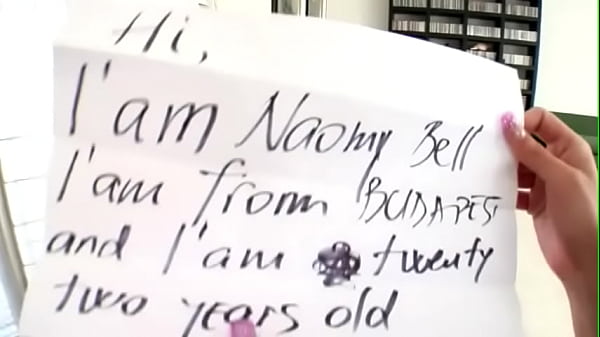 Hi,
I'am Naomy Bell
I'am from BUDAPEST
and I'am twenty
two years old